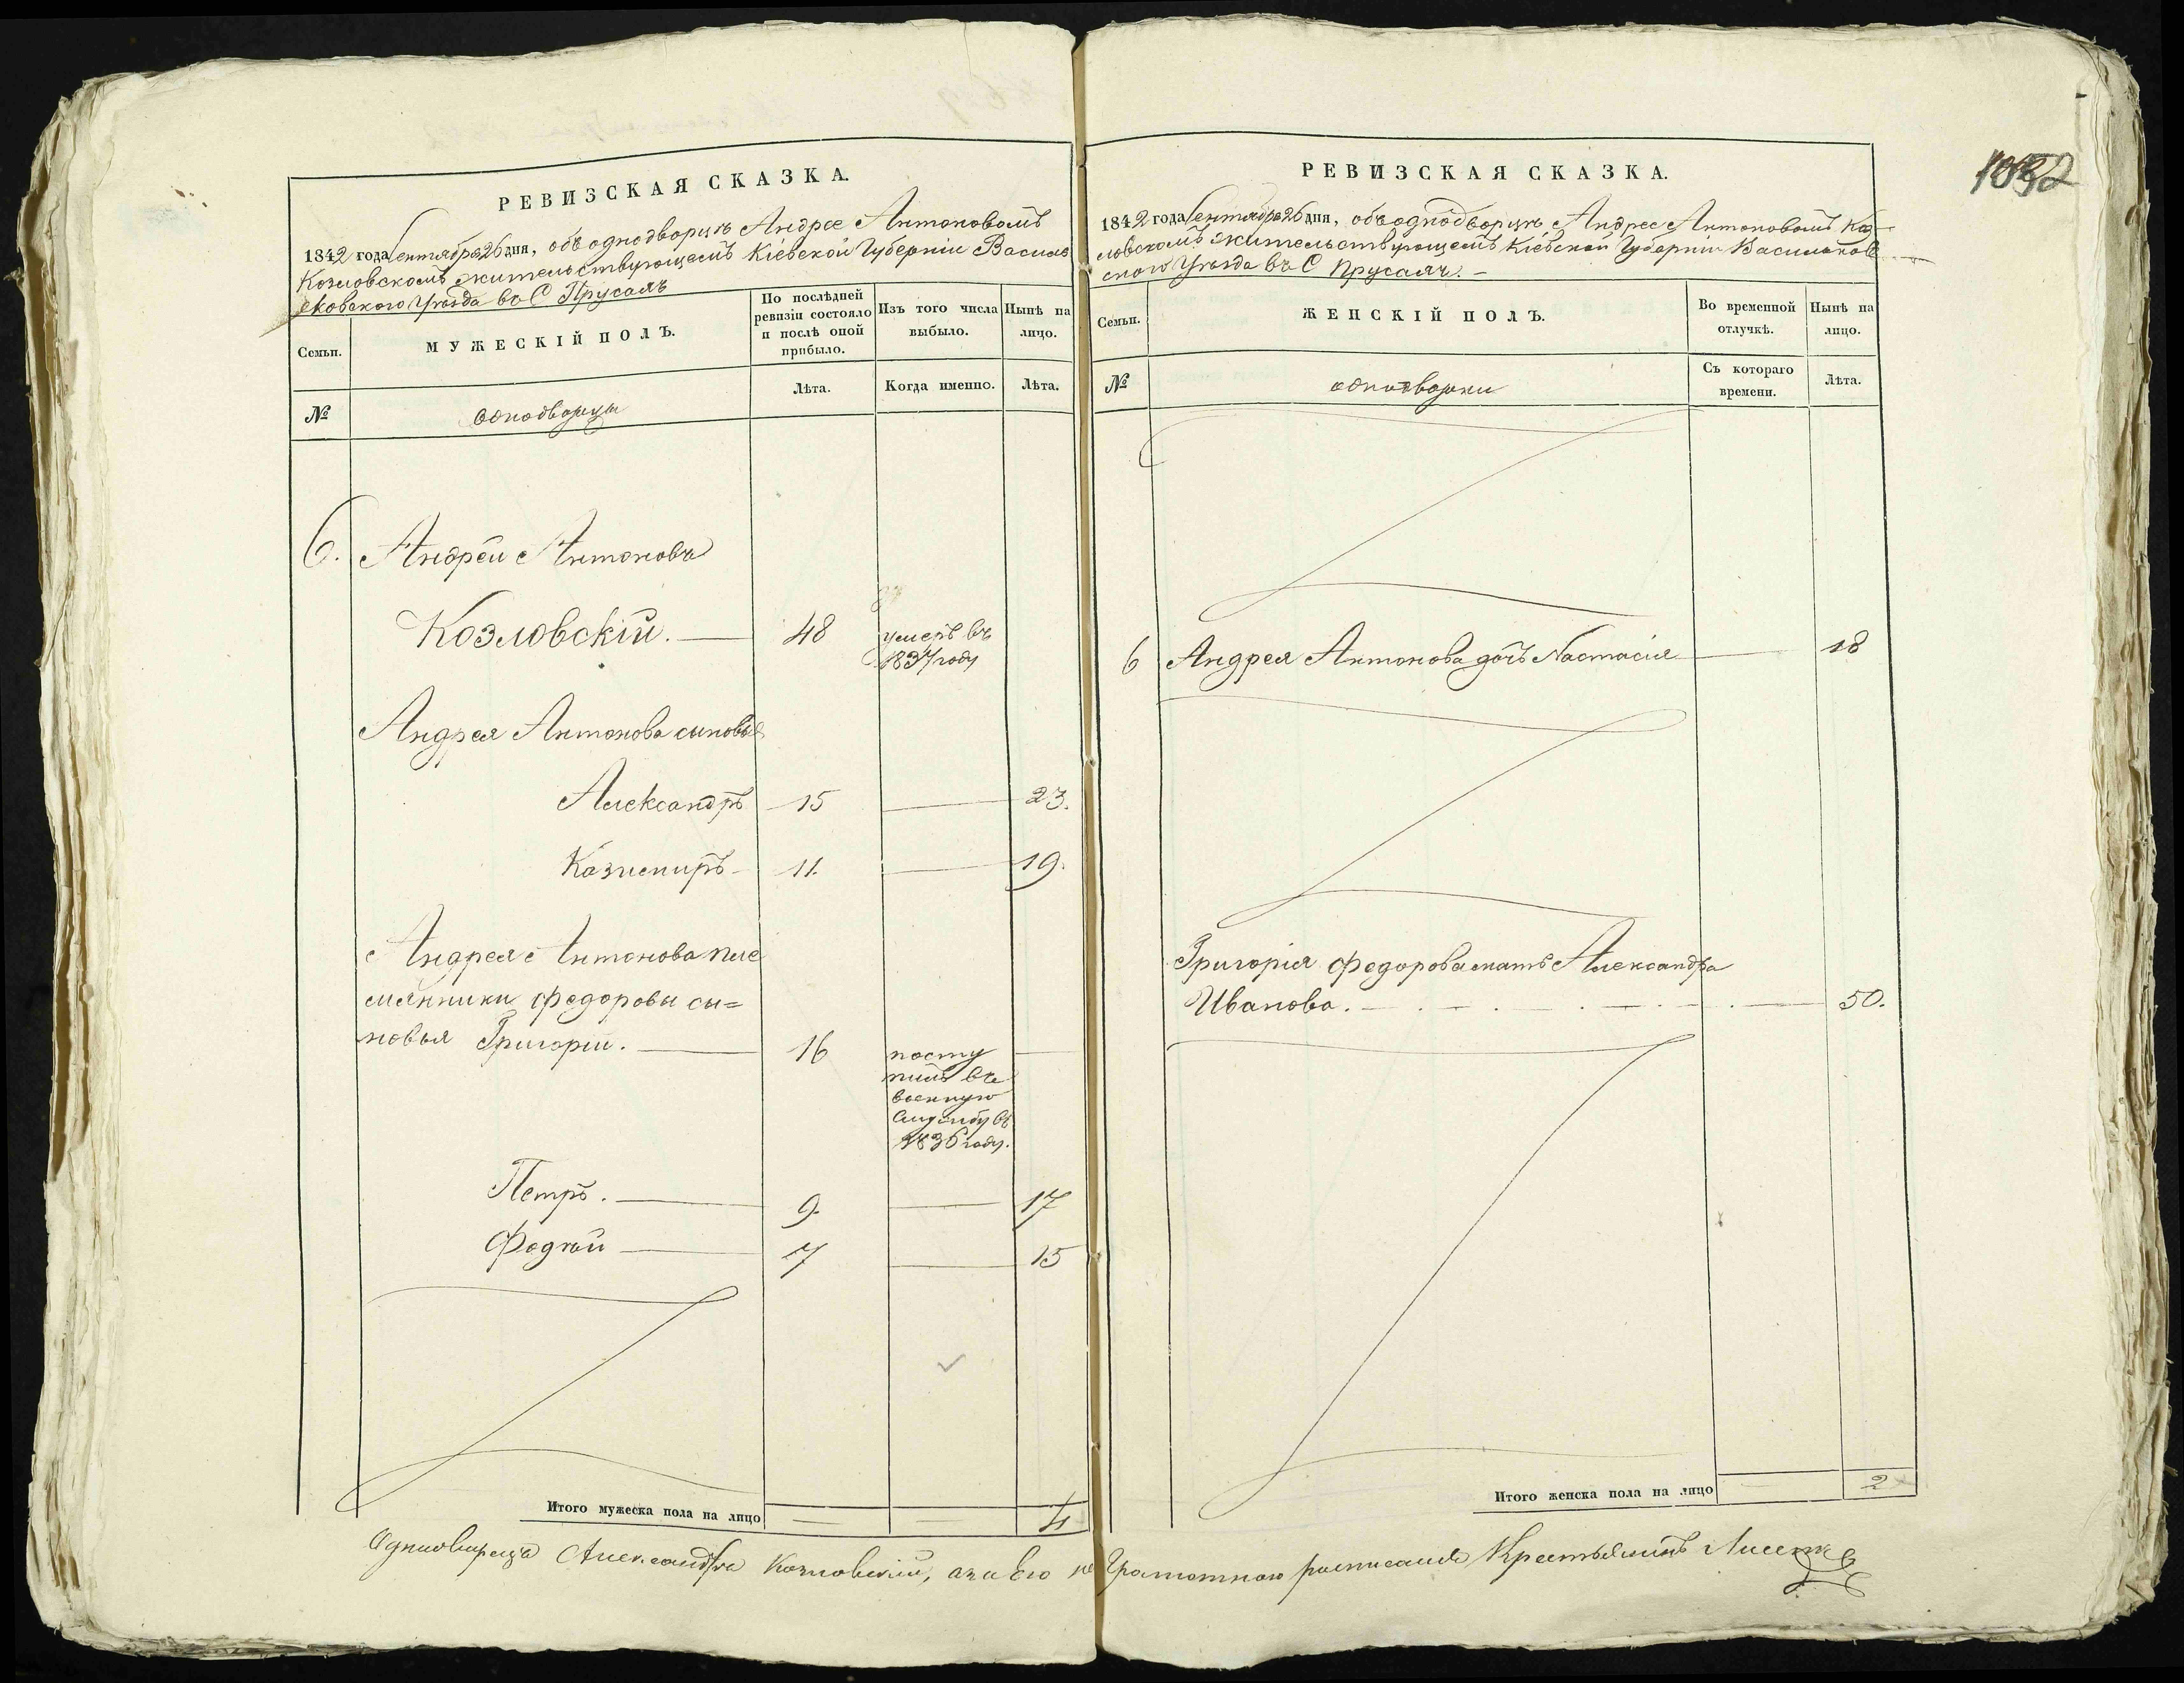 РЕВИЗСКАЯ СКАЗКА.
1842 года Сентября 26 дня, объ однодворцѣ Андрее Антоновомъ
Козловскомъ жительствующемъ Кіевской Губерніи Василь
ковского Уѣзда въ С Прусахъ
Семьи.
МУЖЕСКІЙ ПОЛЪ.
По послѣдней
ревизіи состояло
и послѣ оной
прибыло.
Изъ того числа
выбыло.
Нынѣ на
лицо.
№
однодворцы
Лѣта.
Когда именно.
Лѣта.
6. Андрей Антоновъ
Козловскій. 48 умеръ въ
1837 году
Андрея Антонова сыновья
Александръ 15 23.
Казимиръ 11. 19.
Андрея Антонова пле
мянники Федоровы сы=
новья Григорій. 16 посту
пилъ въ
военную
службу въ
1836 году.
Петръ. 9. 17
Фодѣй 7 15
Итого мужеска пола на лицо 4
РЕВИЗСКАЯ СКАЗКА.
1052
1842 года Сентября 26 дня, объ однодворцѣ Андрее Антоновомъ Коз-
ловскомъ жительствующемъ Кіевской Губерніи Васильков
ского Уѣзда въ С Прусахъ. -
Семьи.
ЖЕНСКІЙ ПОЛЪ.
Во временной
отлучкѣ.
Нынѣ на
лицо.
№
однодворки
Съ котораго
времени.
Лѣта.
6 Андрея Антонова дочь Настасія 18
Григорія Федорова мать Александра
Иванова. 50.
Итого женска пола на лицо 2
Александра Козловскій, а за его не Грамотного росписался Крестьянинъ